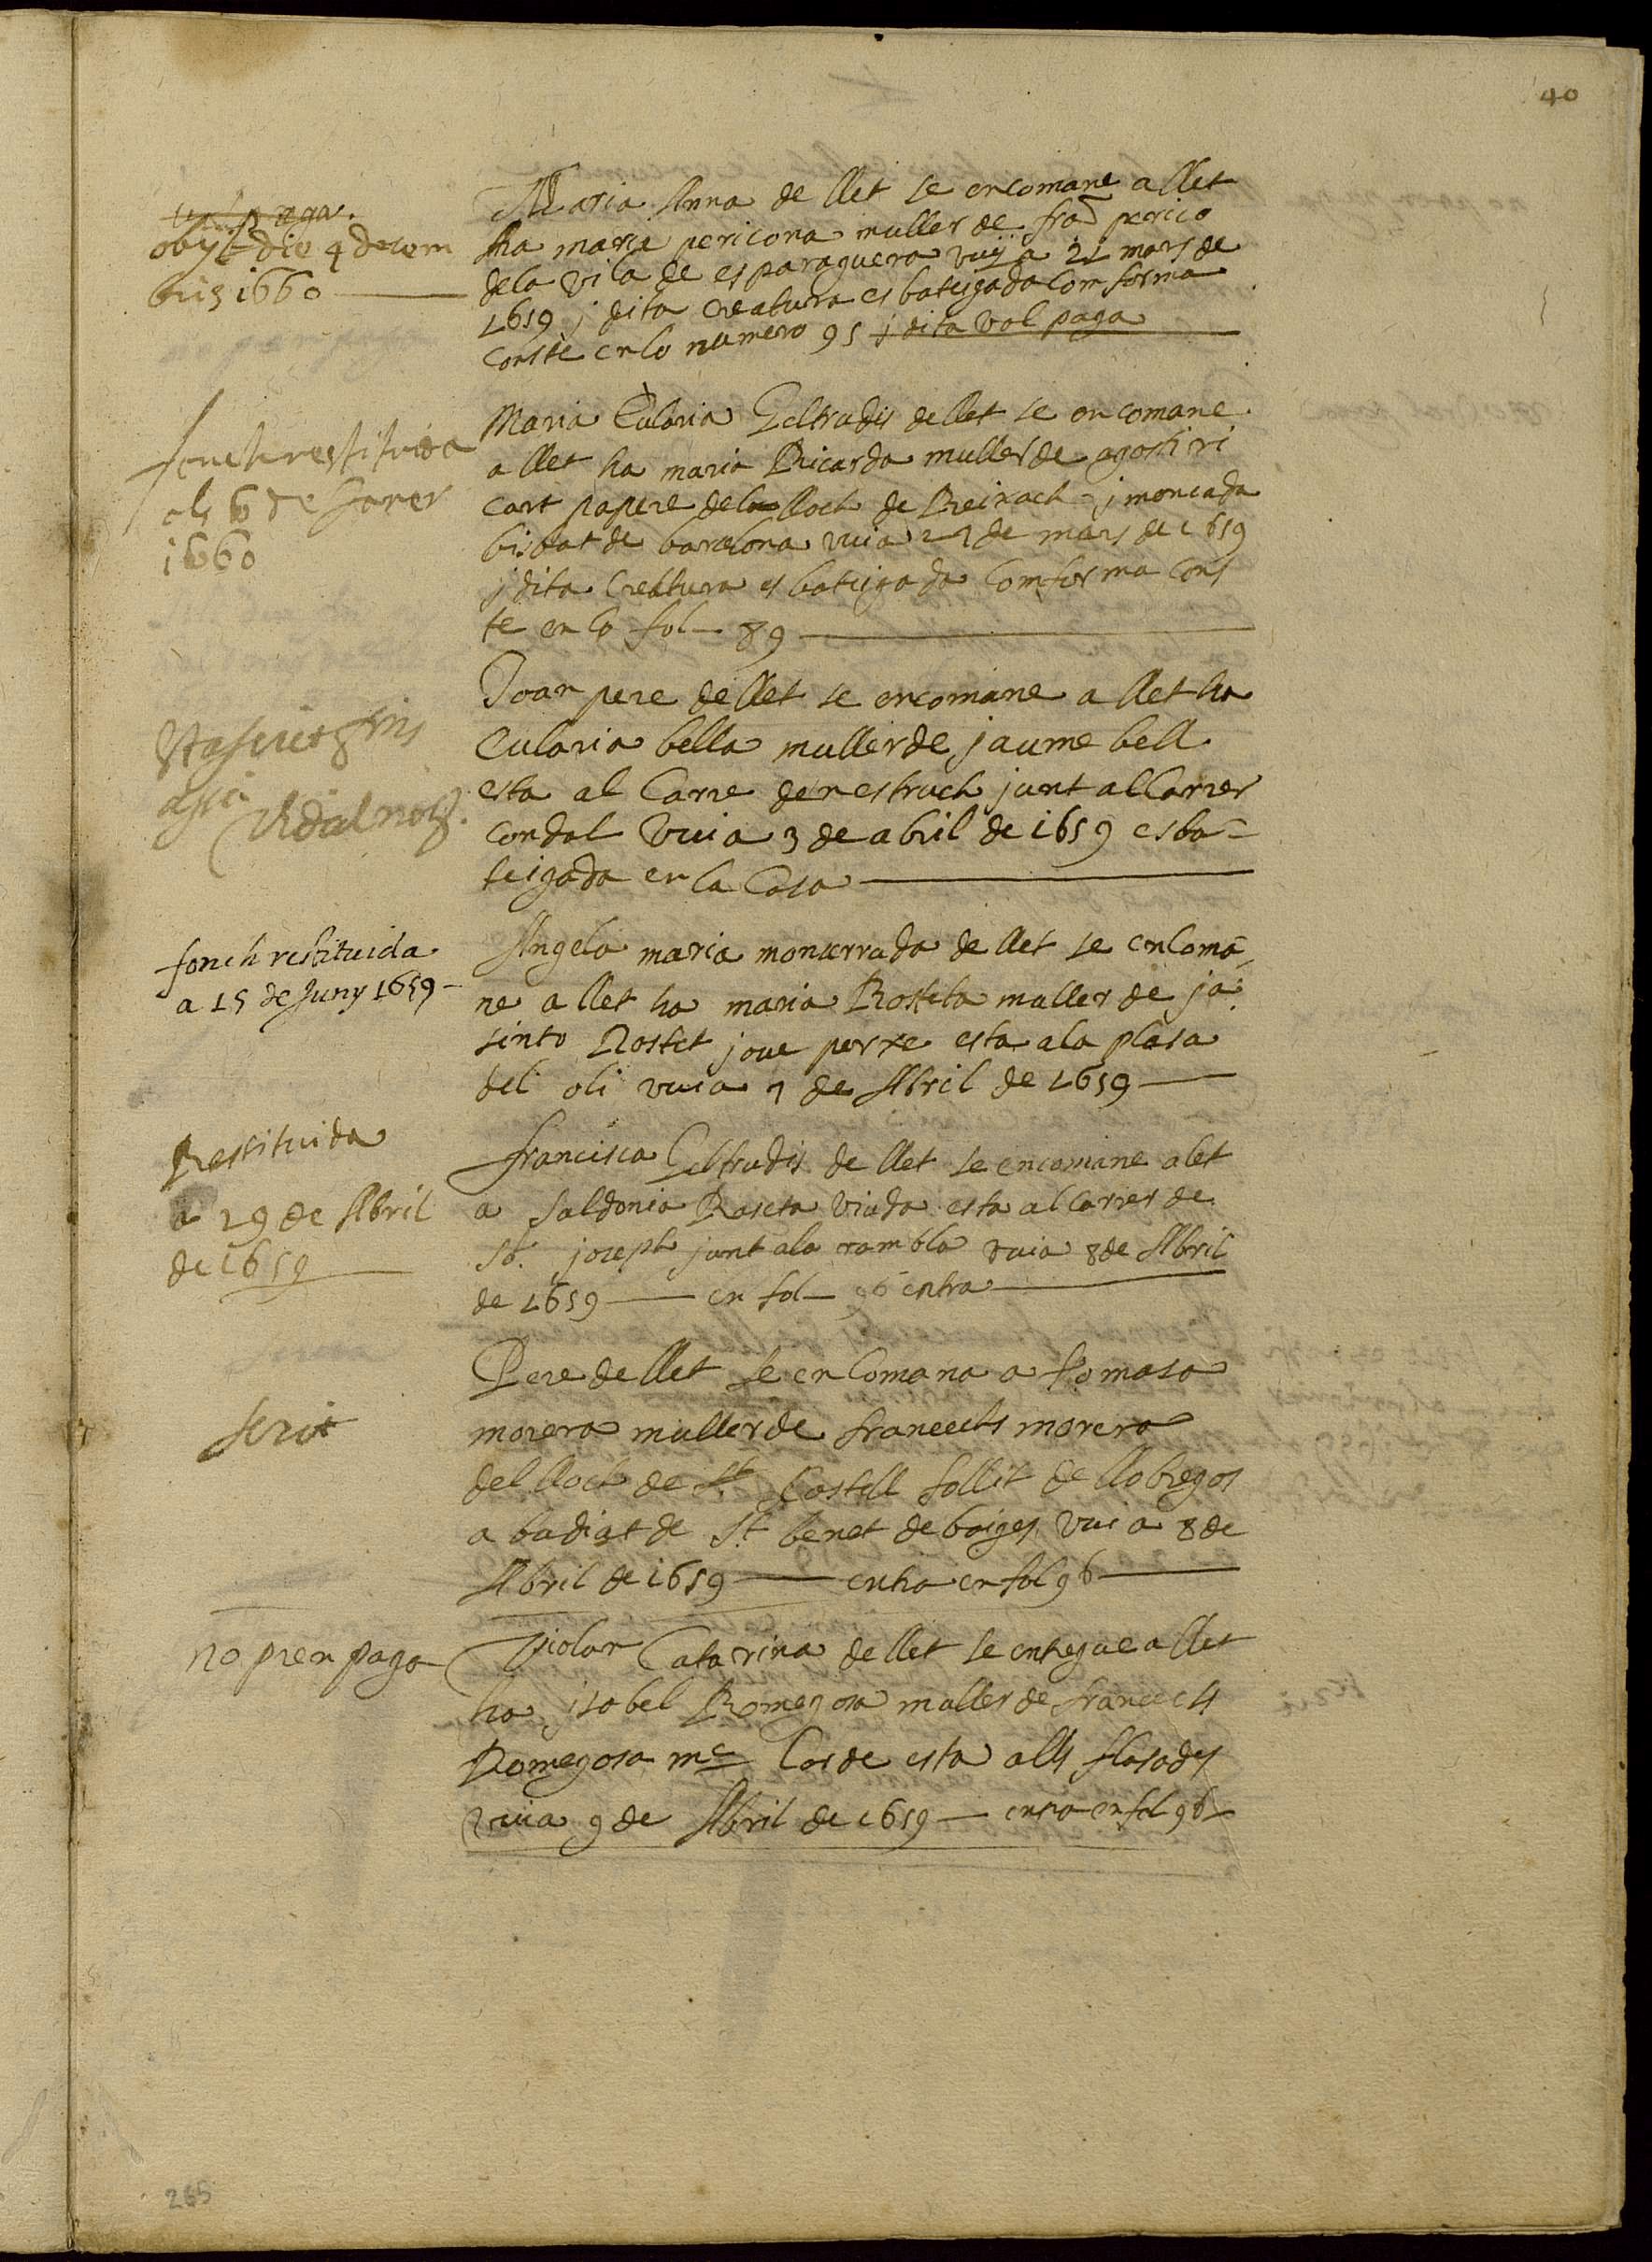 40
paga.
obyt die 4 decem
bris 1660
Maria Anna de llet se encomane a llet
ha maria pericona muller de fra perico
dela vila de esparaguera vuy a 21 mars de
1659 j dita creatura es bateigada comforma
conste en lo numero 95 j dita vol paga
fonch restituida
als 6 de Janer
1660
Maria Eularia Geltrudis de llet se encomane
a llet ha maria Ricarda muller de agosti ri
cart papere del lloch de Reixach j moncada
bisbat de barcelona vuia 27 de mars de 1659
j dita creatura es bateigada comforma cons
te en lo fol 89
assi Vidal not.
Joan pere de llet se encomane a llet ha
Eularia bella muller de jaume bell
esta al Carre den estruch junt al Carrer
condal vuia 3 de abril de 1659 es ba
teigada en la Casa
fonch restituida
a 15 de Juny 1659
Angela maria monserrada de llet se encoma
ne a llet ha maria Rosteta muller de ja
sinto Rostet jove perxe esta ala plasa
del oli vuia 7 de Abril de 1659
Restituida
a 29 de Abril
de 1659
francisca Geltrudis de llet se encomane alet
a Saldonia Raseta Viuda esta al Carrer de
St. joseph junt ala rambla vuia 8 de Abril
de 1659 en fol 96 entra
Pere de llet se encomana a tomasa
morera muller de francechs morera
del lloch de St. Castell follit de llobregos
abadiat de St. benet de baiges vui a 8 de
Abril de 1659 entra en fol 96
no pren paga
Violan Catarina de llet se entregue a llet
ha isabel Romegosa muller de francechs
Romegosa me Corde esta alls flasades
vuia 9 de Abril de 1659 entra en fol 96
265